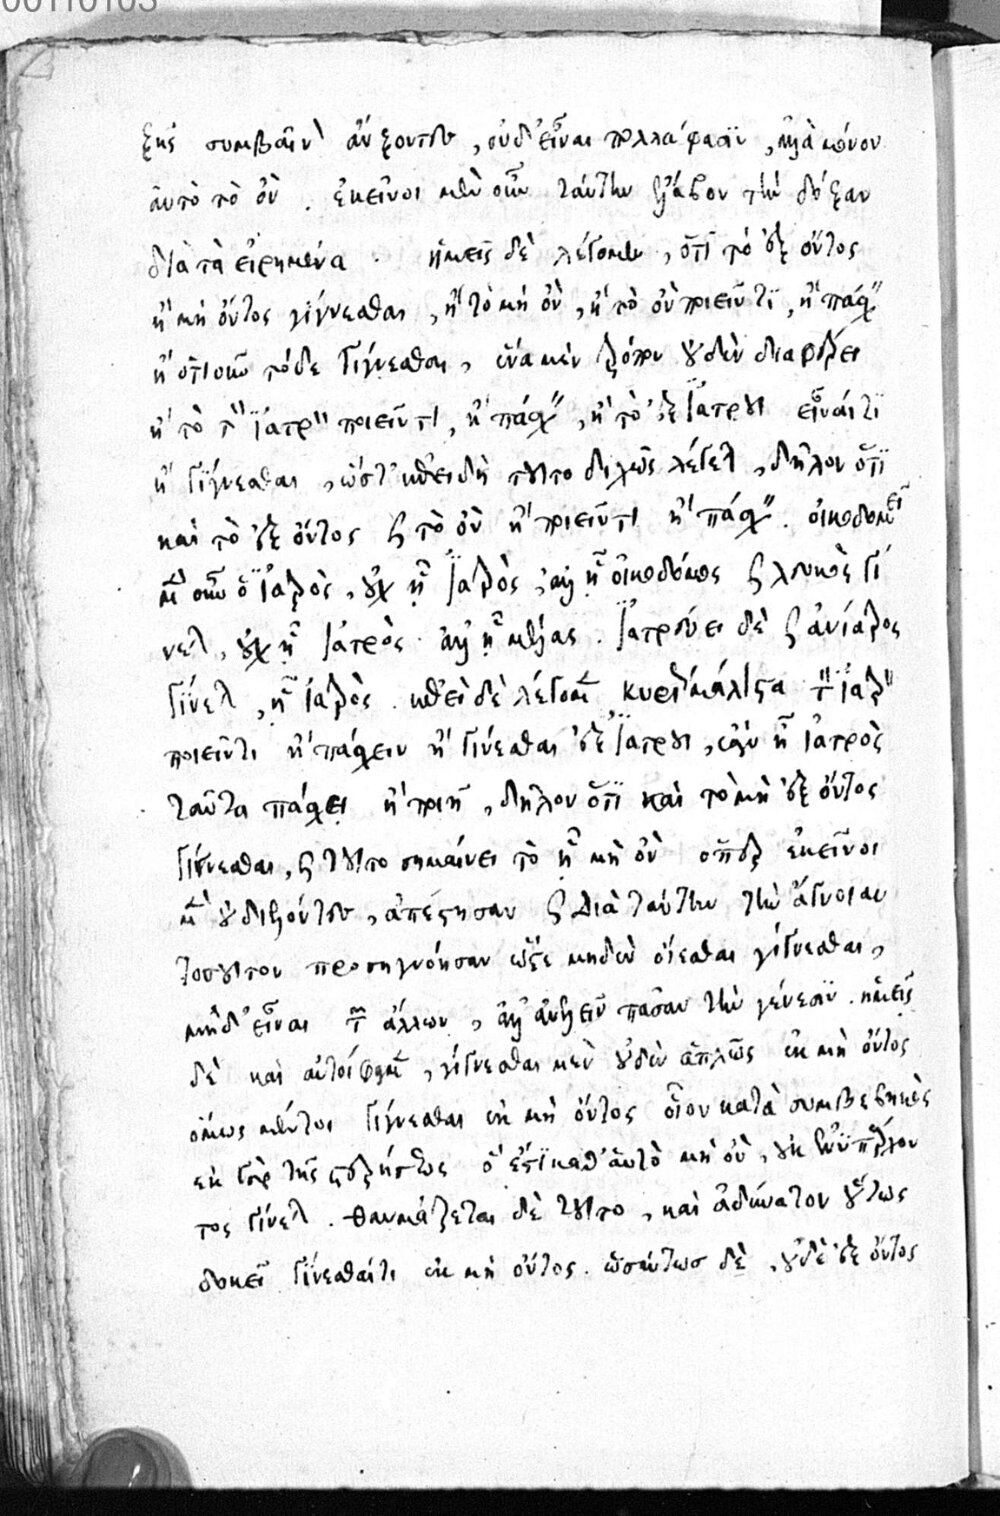 ξῆς συμβαῖν αὔξοντες, οὐδ' εἶναι πολλά φασιν, ἀλλὰ μόνον
αὐτὸ τὸ ὄν. ἐκεῖνοι μὲν οὖν ταύτην ἔλαβον τὴν δόξαν
διὰ τὰ εἰρημένα. ἡμεῖς δὲ λέγομεν, ὅτι τὸ ἐξ ὄντος
ἢ μὴ ὄντος γίγνεσθαι, ἢ τὸ μὴ ὂν, ἢ τὸ ὂν ποιεῖν τι, ἢ πάσχ
ἢ ὁτιοῦν τόδε γίγνεσθαι, ἕνα μὲν τρόπον οὐδὲν διαφέρει
ἢ τὸ τ ἰατρ ποιεῖν τι, ἢ πάσχ, ἢ τὸ ἐξ ἰατροῦ εἶναί τι
ἢ γίγνεσθαι, ὥστ' ἐπειδὴ τοῦτο διχῶς λέγετ, δῆλον ὅτι
καὶ τὸ ἐξ ὄντος ϛ τὸ ὂν ἢ ποιεῖν τι ἢ πάσχ. οἰκοδομεῖ
μ οὖν ὁ ἰατρὸς, οὐχ ᾗ ἰατρὸς, ἀλλ' ᾗ οἰκοδόμος ϛ λευκὸς γί
νετ, οὐχ ᾗ ἰατρὸς ἀλλ' ᾗ μέλας. ἰατρεύει δὲ ϛ ἀνίατρος
γίνετ, ᾗ ἰατρὸς. ἐπεὶ δὲ λέγομ κυρ μάλιστα τ ἰατρ
ποιεῖν τι ἢ πάσχειν ἢ γίνεσθαι ἐξ ἰατροῦ, ἐὰν ᾗ ἰατρὸς
ταῦτα πάσχει ἢ ποιῆ, δῆλον ὅτι καὶ τὸ μὴ ἐξ ὄντος
γίγνεσθαι, ϛ τοῦτο σημαίνει τὸ ᾗ μὴ ὂν ὅπερ ἐκεῖνοι
μ οὐ διελόντες, ἀπέστησαν ϛ διὰ ταύτην τὴν ἄγνοιαν
τοσοῦτον προσηγνόησαν ὥστε μηδὲν οἴεσθαι γίγνεσθαι,
μηδ' εἶναι τ ἄλλων, ἀλλ' ἀνελεῖν πᾶσαν τὴν γένεσιν. ἡμεῖς
δὲ καὶ αὐτοί φαμ, γίγνεσθαι μὲν οὐδὲν ἁπλῶς ἐκ μὴ ὄντος
ὅμως μέντοι γίγνεσθαι ἐκ μὴ ὄντος οἷον κατὰ συμβεβηκὸς
ἐκ γὰρ τῆς στερήσεως ὅ ἐστι καθ' αὑτὸ μὴ ὂν, οὐκ ἐνυπάρχον
τος γίνετ. θαυμάζεται δὲ τοῦτο, καὶ ἀδύνατον οὕτως
δοκεῖ γίνεσθαί τι ἐκ μὴ ὄντος. ὡσαύτως δὲ, οὐδὲ ἐξ ὄντος